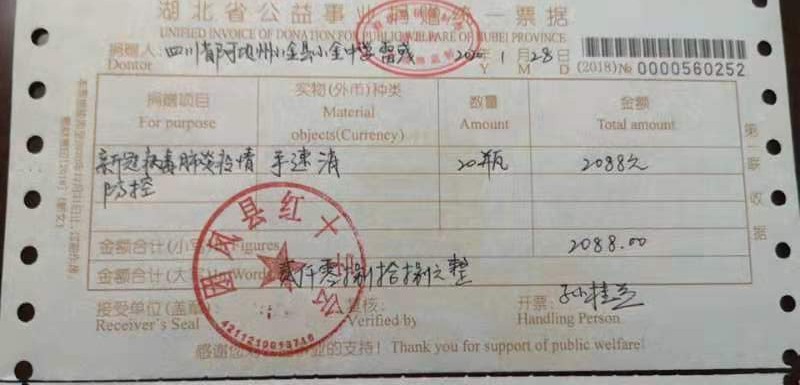 湖北省公益事业捐赠统一票据
UNIFIED INVOICE OF DONATION FOR PUBLIC WELFARE OF HUBEI PROVINCE
捐赠人: 四川省阿坝州小金县小金中学 2020 1月28日
Dontor Y M D (2018)№ 0000560252
捐赠项目 实物(外币)种类 数量 金额
For purpose Material Amount Total amount
objects(Currency)
新冠病毒肺炎疫情 手速消 20瓶 2088元
防控
金额合计(小写) Figures 2088.00
金额合计(大写) Words 贰仟零捌拾捌元整
接受单位(盖章) 复核: 开票: 孙桂兰
Receiver's Seal Verified by Handling Person
感谢您对公益事业的支持! Thank you for support of public welfare!
团风县红十字会
第一联 收据